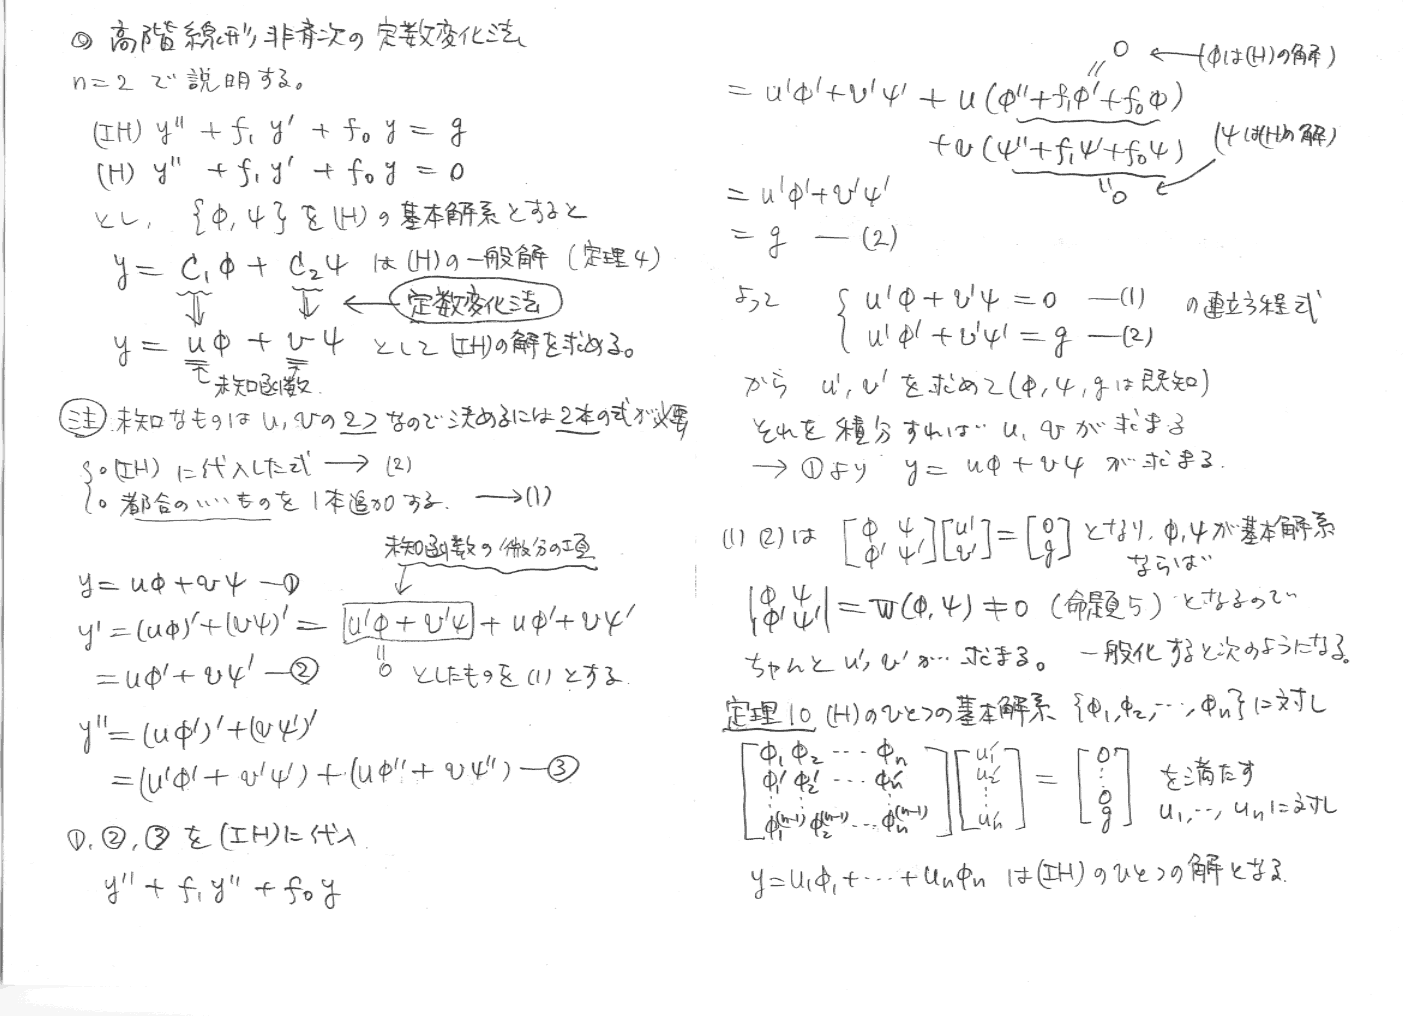 ◎ 高階線形非斉次の定数変化法
n=2 で説明する。
(IH) y'' + f₁ y' + f₀ y = g
(H) y'' + f₁ y' + f₀ y = 0
とし、{φ, ψ} を (H) の基本解系とすると
y = C₁φ + C₂ψ は (H) の一般解 (定理4)
⇓ ⇓ ← 定数変化法
y = uφ + vψ として (IH) の解を求める。
未知函数
注 未知なものは u, v の2つなので決めるには2本の式が必要
{ ○ (IH) に代入した式 → (2)
○ 都合のいいものを1本追加する。 → (1)
未知函数の微分の項
y = uφ + vψ —①
y' = (uφ)' + (vψ)' = u'φ + v'ψ + uφ' + vψ'
= uφ' + vψ' —② 〃0 としたものを (1) とする.
y'' = (uφ')' + (vψ')'
= (u'φ' + v'ψ') + (uφ'' + vψ'') —③
①, ②, ③ を (IH) に代入
y'' + f₁y'' + f₀y
0 ← (φは(H)の解)
= u'φ' + v'ψ' + u(φ'' + f₁φ' + f₀φ)
+ v(ψ'' + f₁ψ' + f₀ψ) (ψは(H)の解)
〃0
= u'φ' + v'ψ'
= g — (2)
よって { u'φ + v'ψ = 0 —(1) の連立方程式
u'φ' + v'ψ' = g —(2)
から u', v' を求めて (φ, ψ, g は既知)
それを積分すれば u, v が求まる
→ ①より y = uφ + vψ が求まる.
(1) (2) は [φ ψ; φ' ψ'][u'; v'] = [0; g] となり, φ, ψ が基本解系
ならば
|φ ψ; φ' ψ'| = W(φ, ψ) ≠ 0 (命題5) となるので
ちゃんと u', v' が 求まる。 一般化すると次のようになる。
定理10 (H) のひとつの基本解系 {φ₁, φ₂, ⋯, φn} に対し
[φ₁ φ₂ ⋯ φn; φ₁' φ₂' ⋯ φn'; ⋮; φ₁⁽ⁿ⁻¹⁾ φ₂⁽ⁿ⁻¹⁾ ⋯ φn⁽ⁿ⁻¹⁾][u₁'; u₂'; ⋮; un'] = [0; ⋮; 0; g] を満たす
u₁, ⋯, un に対し
y = u₁φ₁ + ⋯ + unφn は (IH) のひとつの解となる.